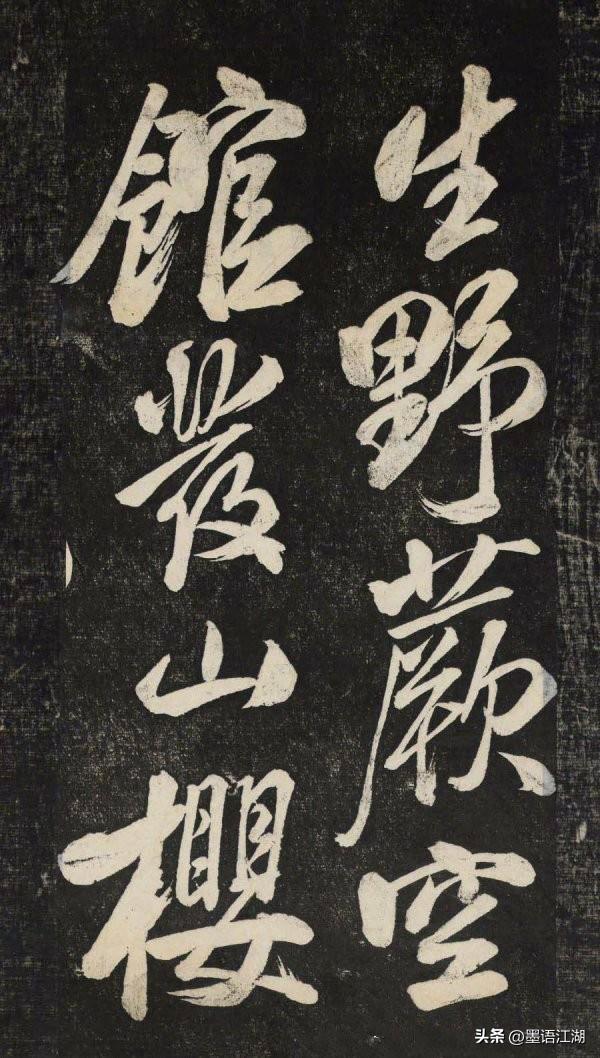 生野蕨空
館發山櫻
头条 @墨语江湖